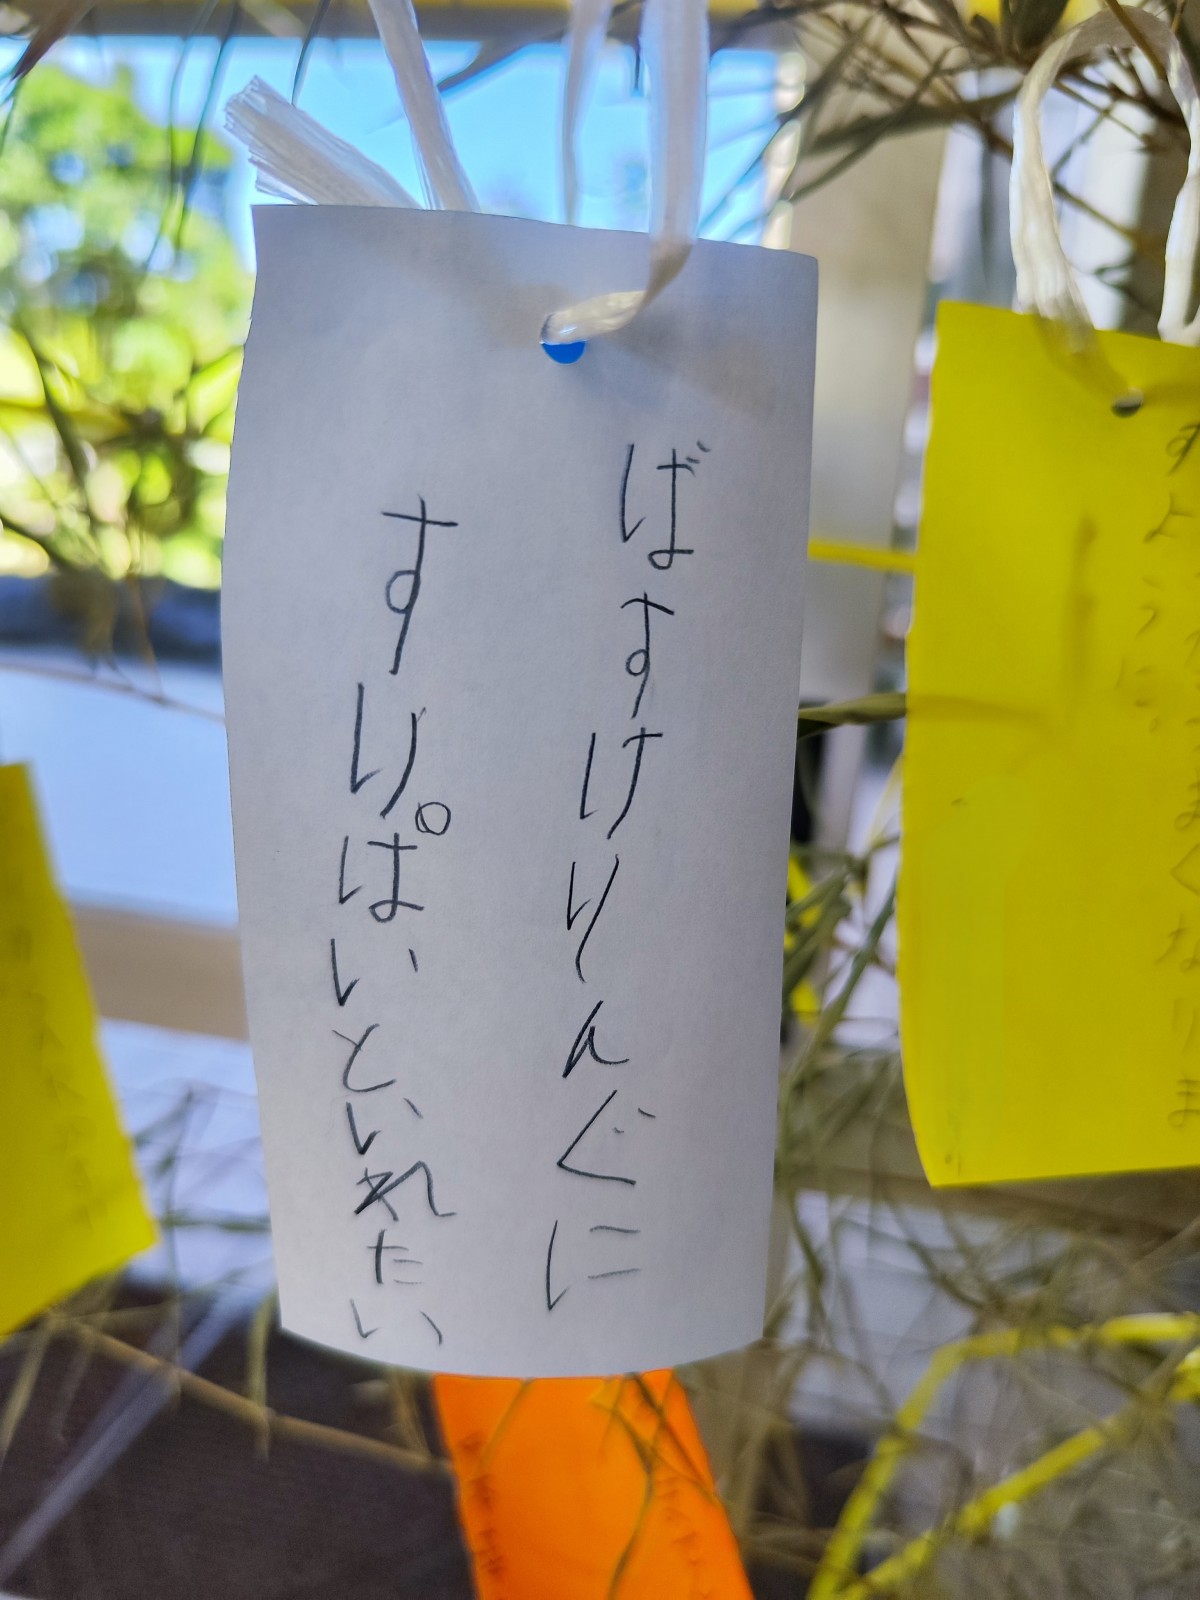 ばすけりんぐに
すりぱいといれたい
まくなりま
すように